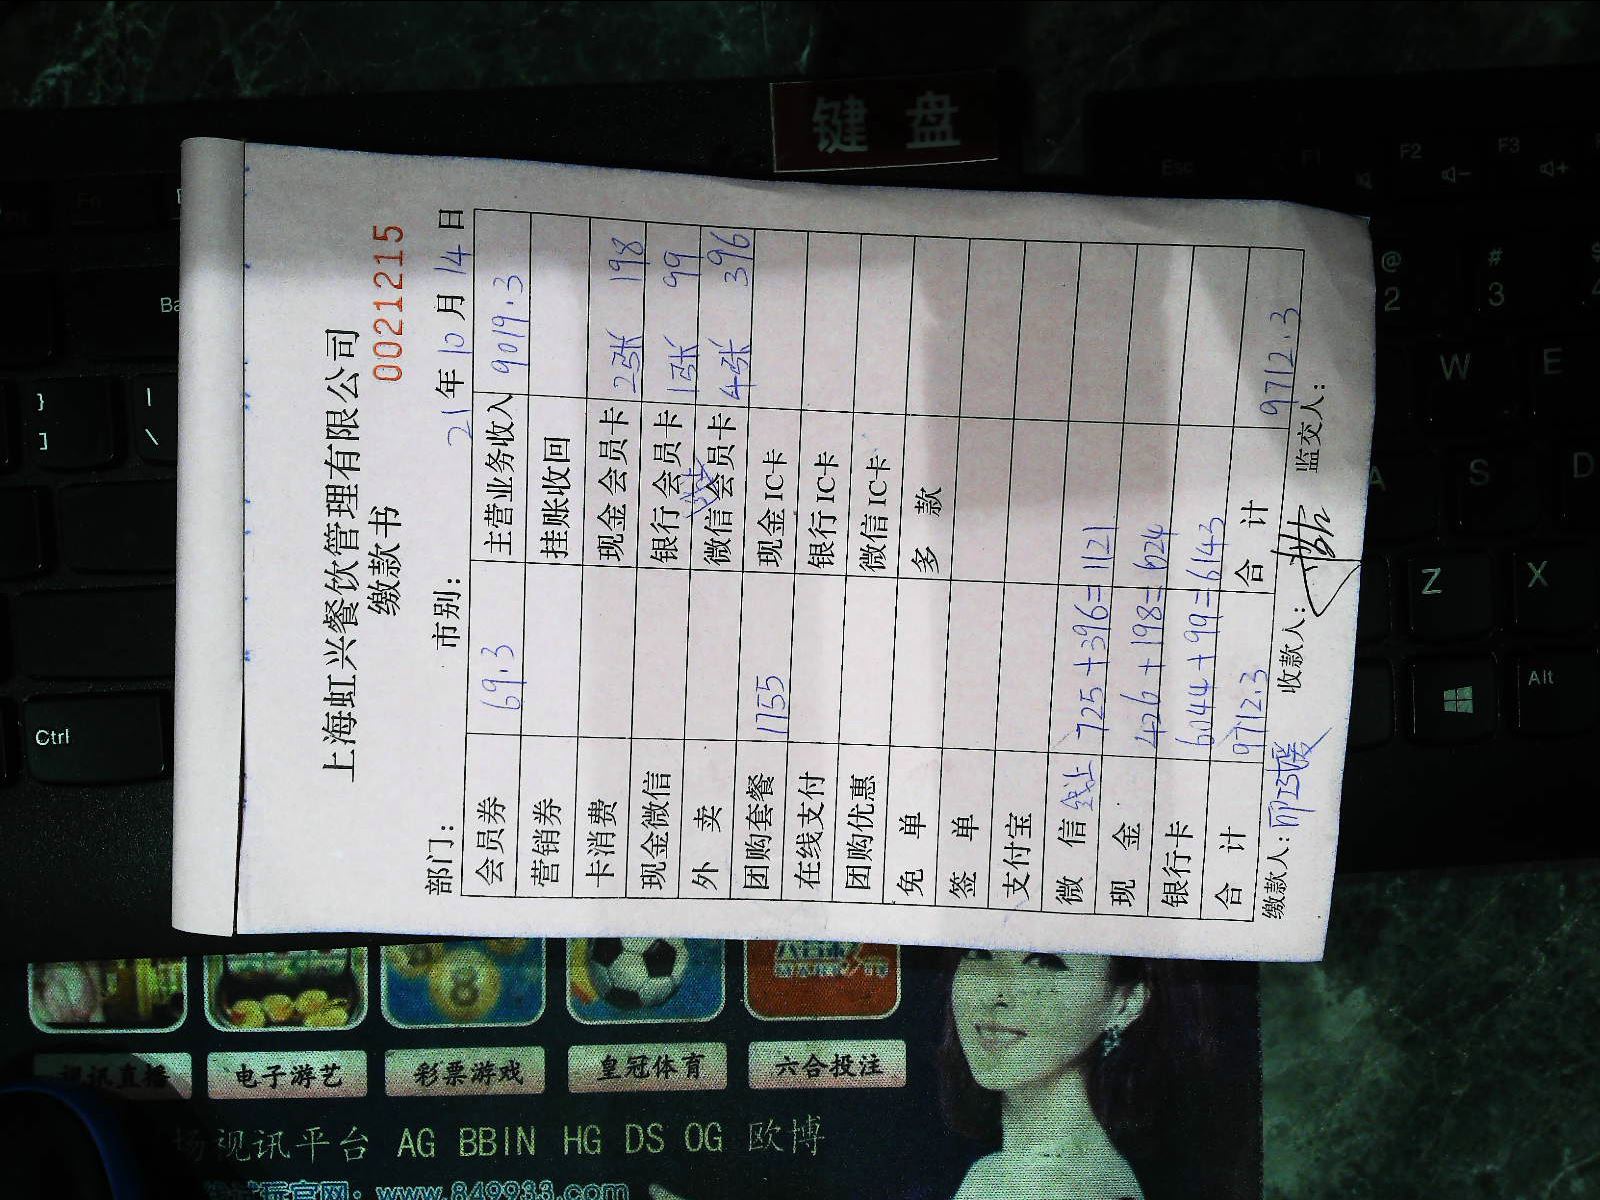 键 盘
上海虹兴餐饮管理有限公司
缴款书
0021215
部门： 市别： 21年10月14日
会员券 69.3 主营业务收入 9019.3
营销券 挂账收回
卡消费 现金会员卡 2张 198
现金微信 银行会员卡 1张 99
外 卖 微信会员卡 4张 396
团购套餐 1155 现金IC卡
在线支付 银行IC卡
团购优惠 微信IC卡
免 单 多 款
签 单
支付宝
微 信 线上 725+396=1121
现 金 426+198=624
银行卡 6044+99=6143
合 计 9712.3 合 计 9712.3
缴款人： 收款人： 监交人：
Esc F1 F2 F3
@ 2 # 3
W E
A S D
Z X
Alt
Ctrl
Fn
Ba
} ]
| \
视讯直播 电子游艺 彩票游戏 皇冠体育 六合投注
8
场视讯平台 AG BBIN HG DS OG 欧博
官网：www.849933.com